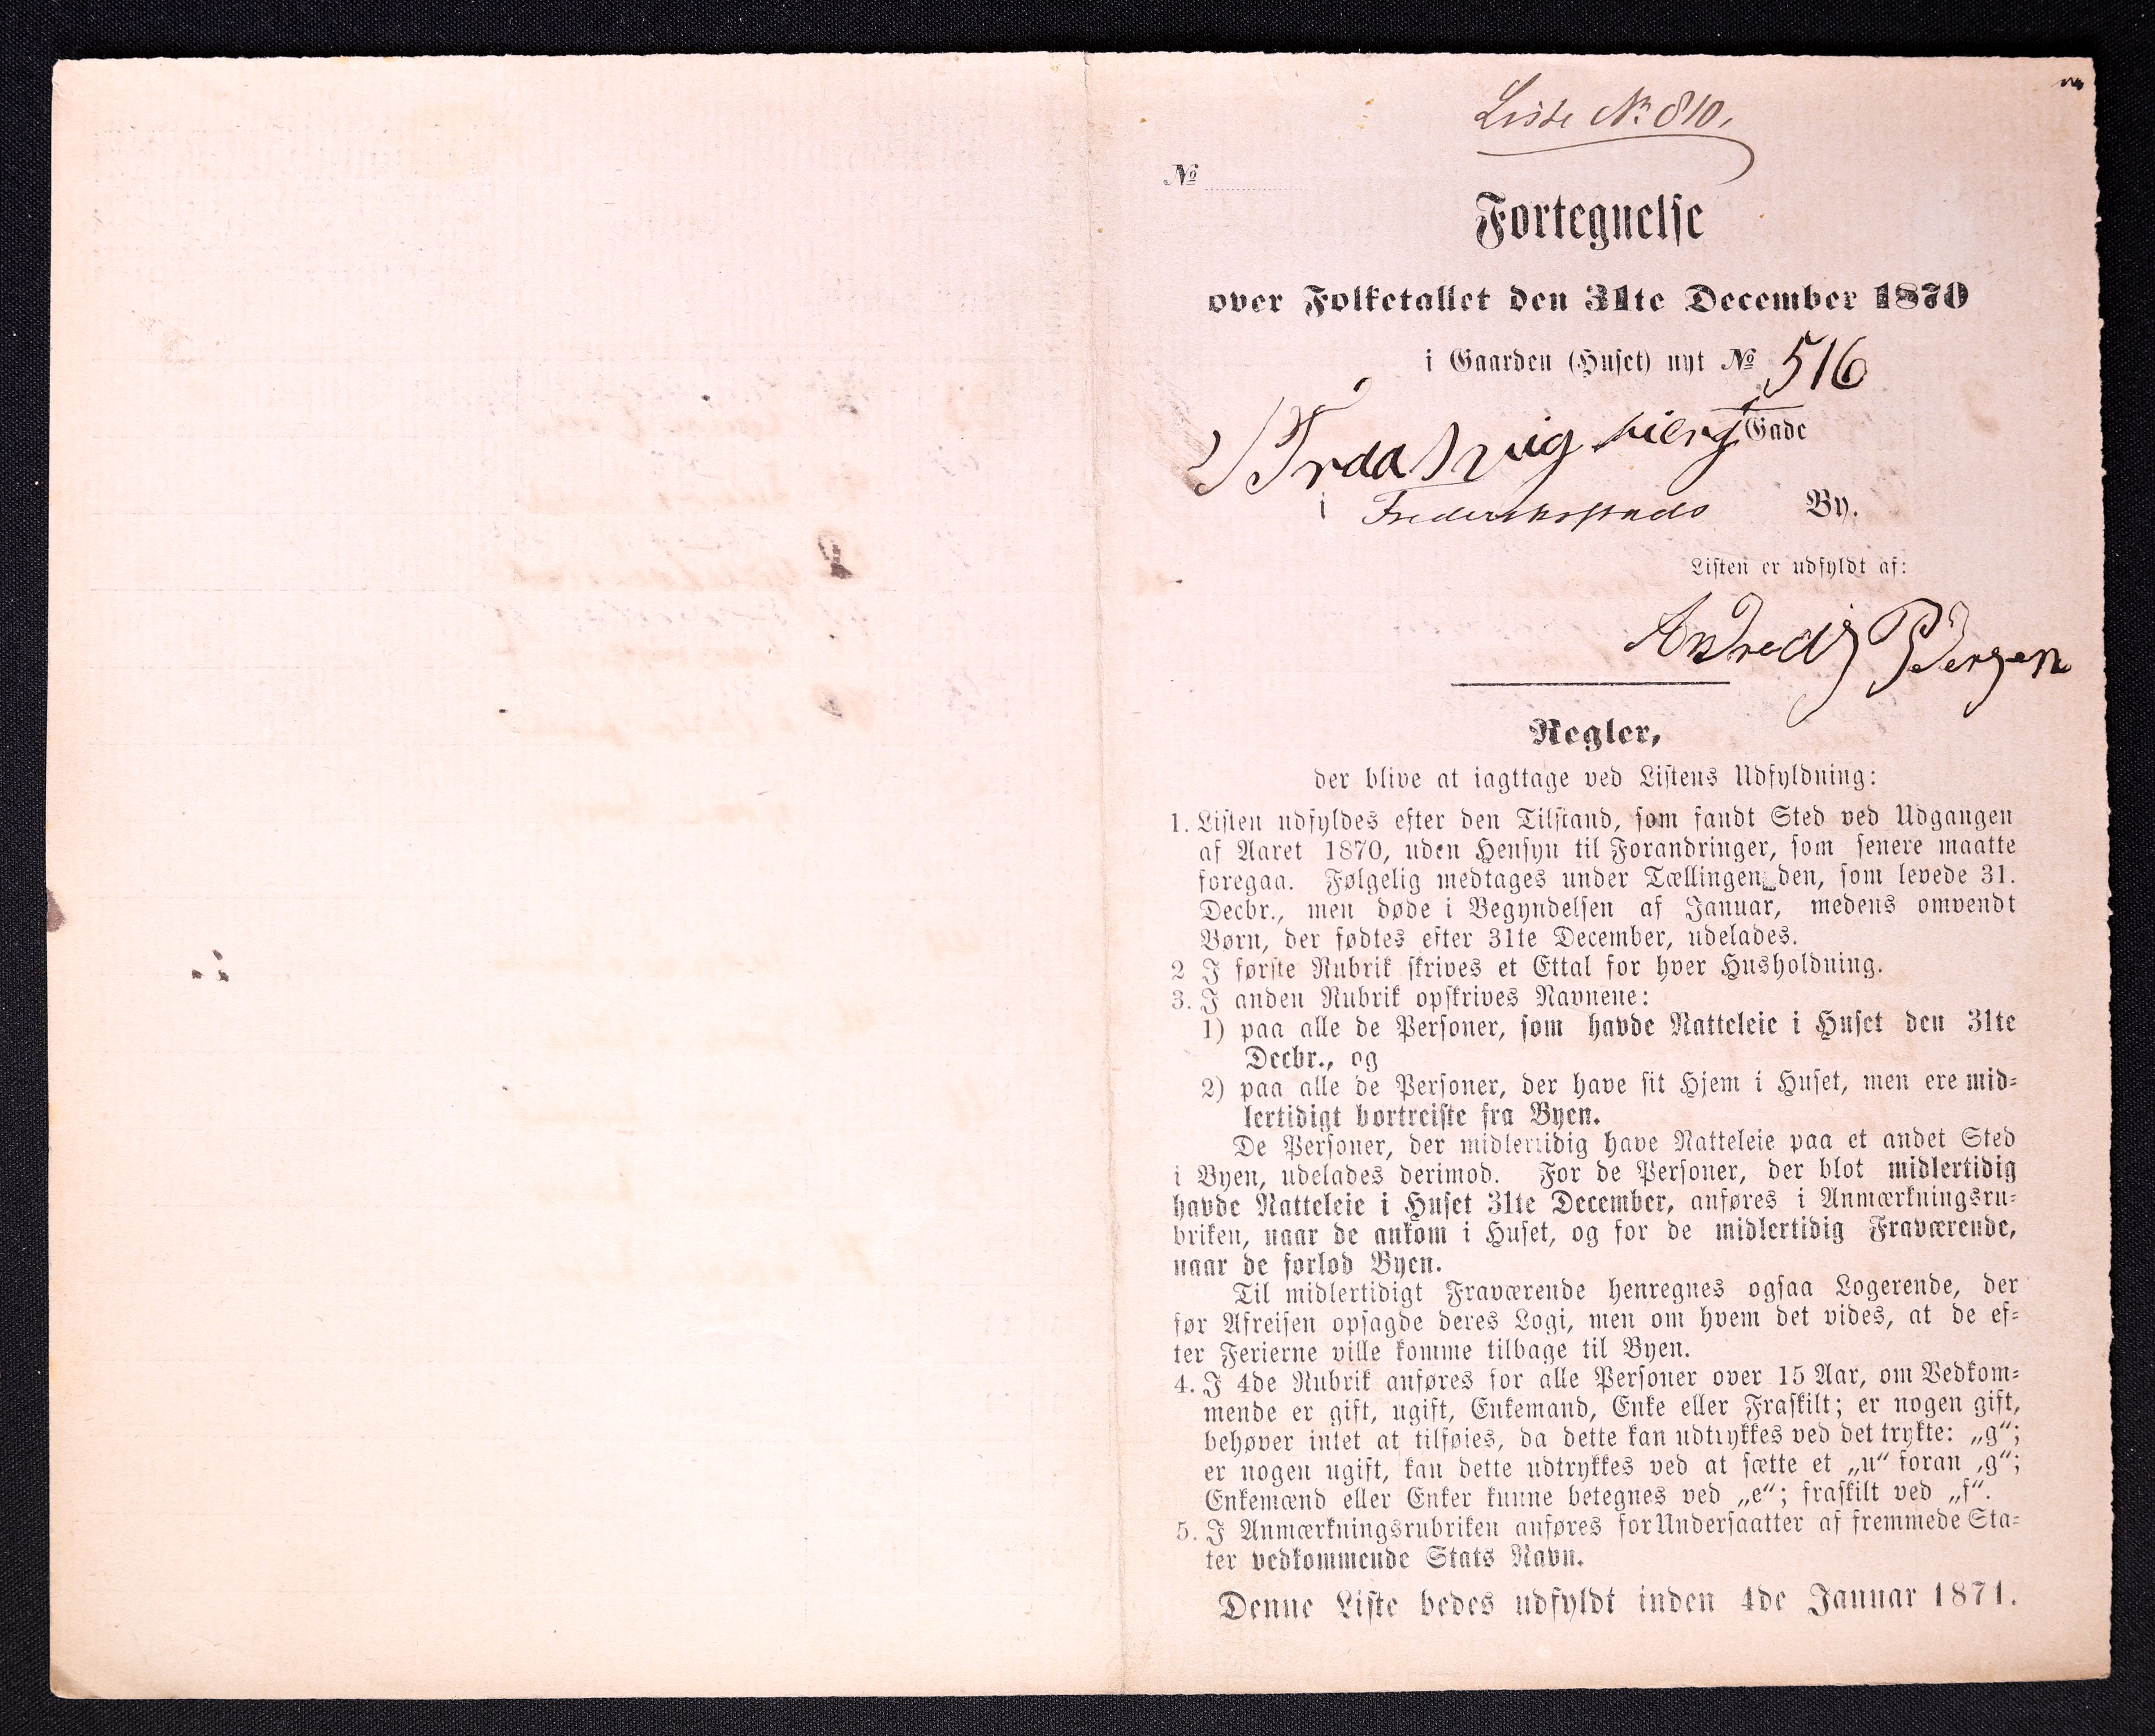 Liste No 810.
No
Fortegnelse
over Folketallet den 31te December 1870
i Gaarden (Huset) nyt No 516
Gade
i Frederiksstads By.
Listen er udfyldt af:
Regler,
der blive at iagttage ved Listens Udfyldning:
1. Listen udfyldes efter den Tilstand, som fandt Sted ved Udgangen
af Aaret 1870, uden Hensyn til Forandringer, som senere maatte
foregaa. Følgelig medtages under Tællingen den, som levede 31.
Decbr., men døde i Begyndelsen af Januar, medens omvendt
Børn, der fødtes efter 31te December, udelades.
2 I første Rubrik skrives et Ettal for hver Husholdning.
3. I anden Rubrik opskrives Navnene:
1) paa alle de Personer, som havde Natteleie i Huset den 31te
Decbr., og
2) paa alle de Personer, der have sit Hjem i Huset, men ere mid-
lertidigt bortreiste fra Byen.
De Personer, der midlertidig have Natteleie paa et andet Sted
i Byen, udelades derimod. For de Personer, der blot midlertidig
havde Natteleie i Huset 31te December, anføres i Anmærkningsru-
briken, naar de ankom i Huset, og for de midlertidig Fraværende,
naar de forlod Byen.
Til midlertidigt Fraværende henregnes ogsaa Logerende, der
før Afreisen opsagde deres Logi, men om hvem det vides, at de ef-
ter Ferierne ville komme tilbage til Byen.
4. I 4de Rubrik anføres for alle Personer over 15 Aar, om Vedkom-
mende er gift, ugift, Enkemand, Enke eller Fraskilt; er nogen gift,
behøver intet at tilføies, da dette kan udtrykkes ved det trykte: „g“;
er nogen ugift, kan dette udtrykkes ved at sætte et „u“ foran ‚g“;
Enkemænd eller Enker kunne betegnes ved „e“; fraskilt ved „f“.
5. I Anmærkningsrubriken anføres for Undersaatter af fremmede Sta-
ter vedkommende Stats Navn.
Denne Liste bedes udfyldt inden 4de Januar 1871.